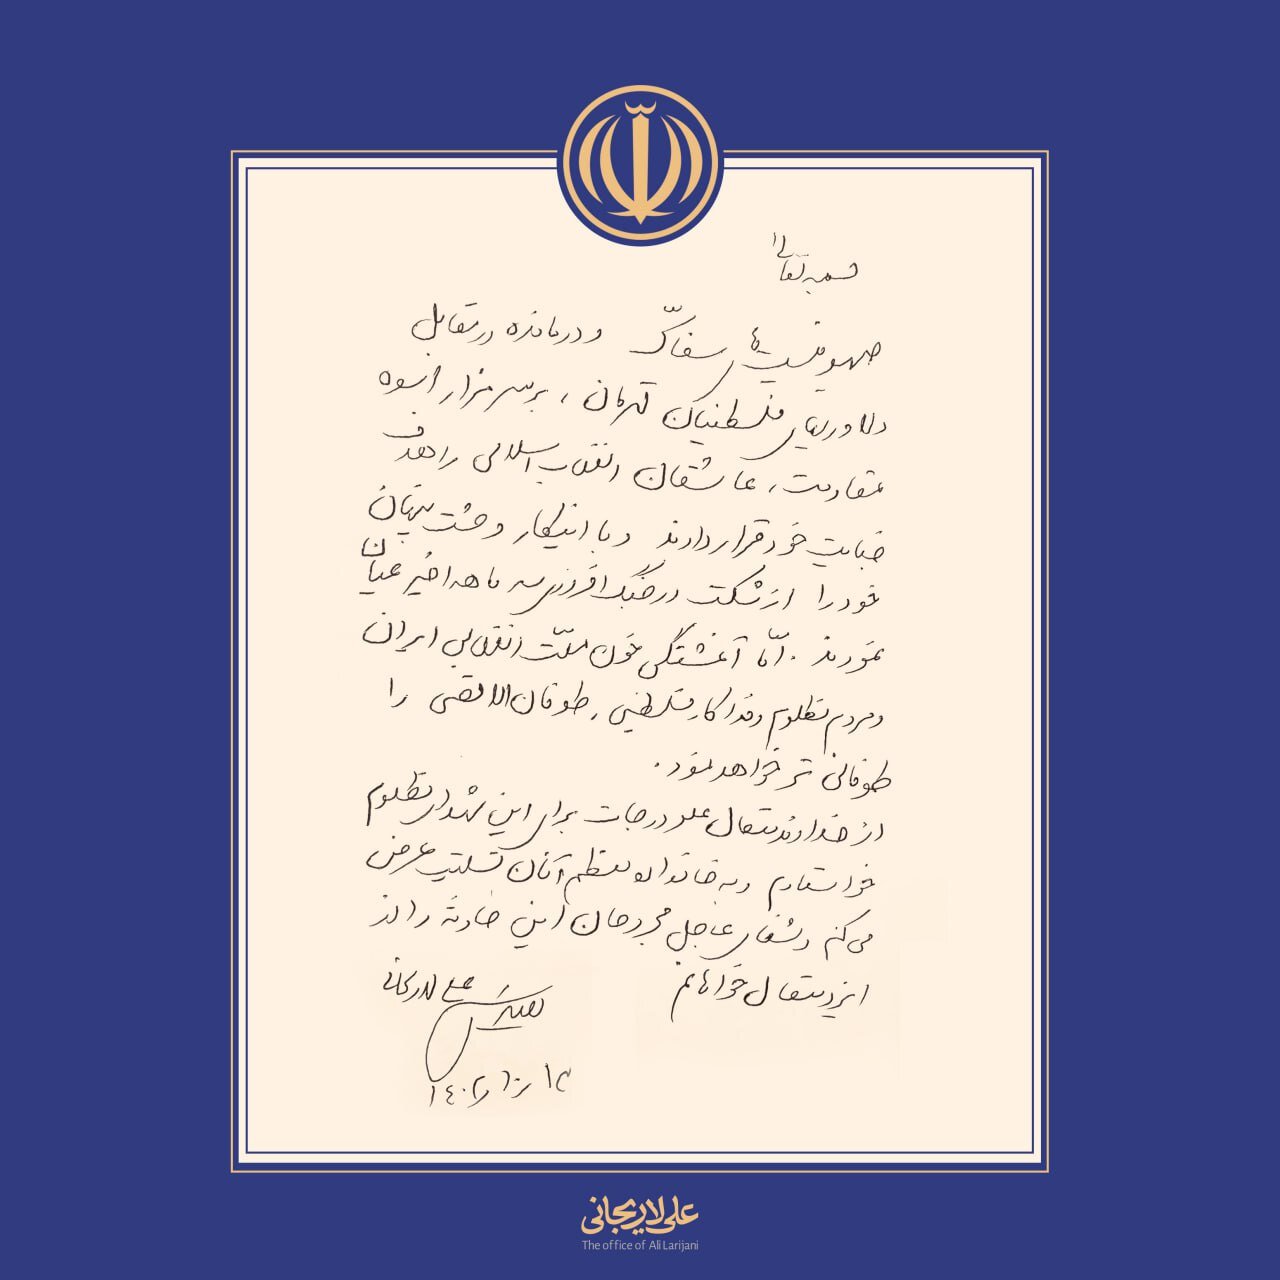 بسمه تعالی
صهیونیست‌های سفّاک و درمانده در مقابل
دلاوریهای فلسطنیان قهرمان، بر سر مزار اسوه
مقاومت، عاشقان انقلاب اسلامی را هدف
خباثت خود قرار دادند و با اینکار وحشت پنهان
خود را از شکست در جنگ افروزی سه ماهه اخیر عیان
نمودند. امّا آغشتگی خون ملّت انقلابی ایران
و مردم مظلوم و فداکار فلسطینی، طوفان الاقصی را
طوفانی تر خواهد نمود.
از خداوند متعال علو درجات برای این شهدای مظلوم
خواستارم و به خانواده معظم آنان تسلیت عرض
می‌کنم و شفای عاجل مجروحان این حادثه را از
ایزد متعال خواهانم
علی لاریجانی
۱۴۰۲/۱۰/۱۳
علی لاریجانی
The office of Ali Larijani